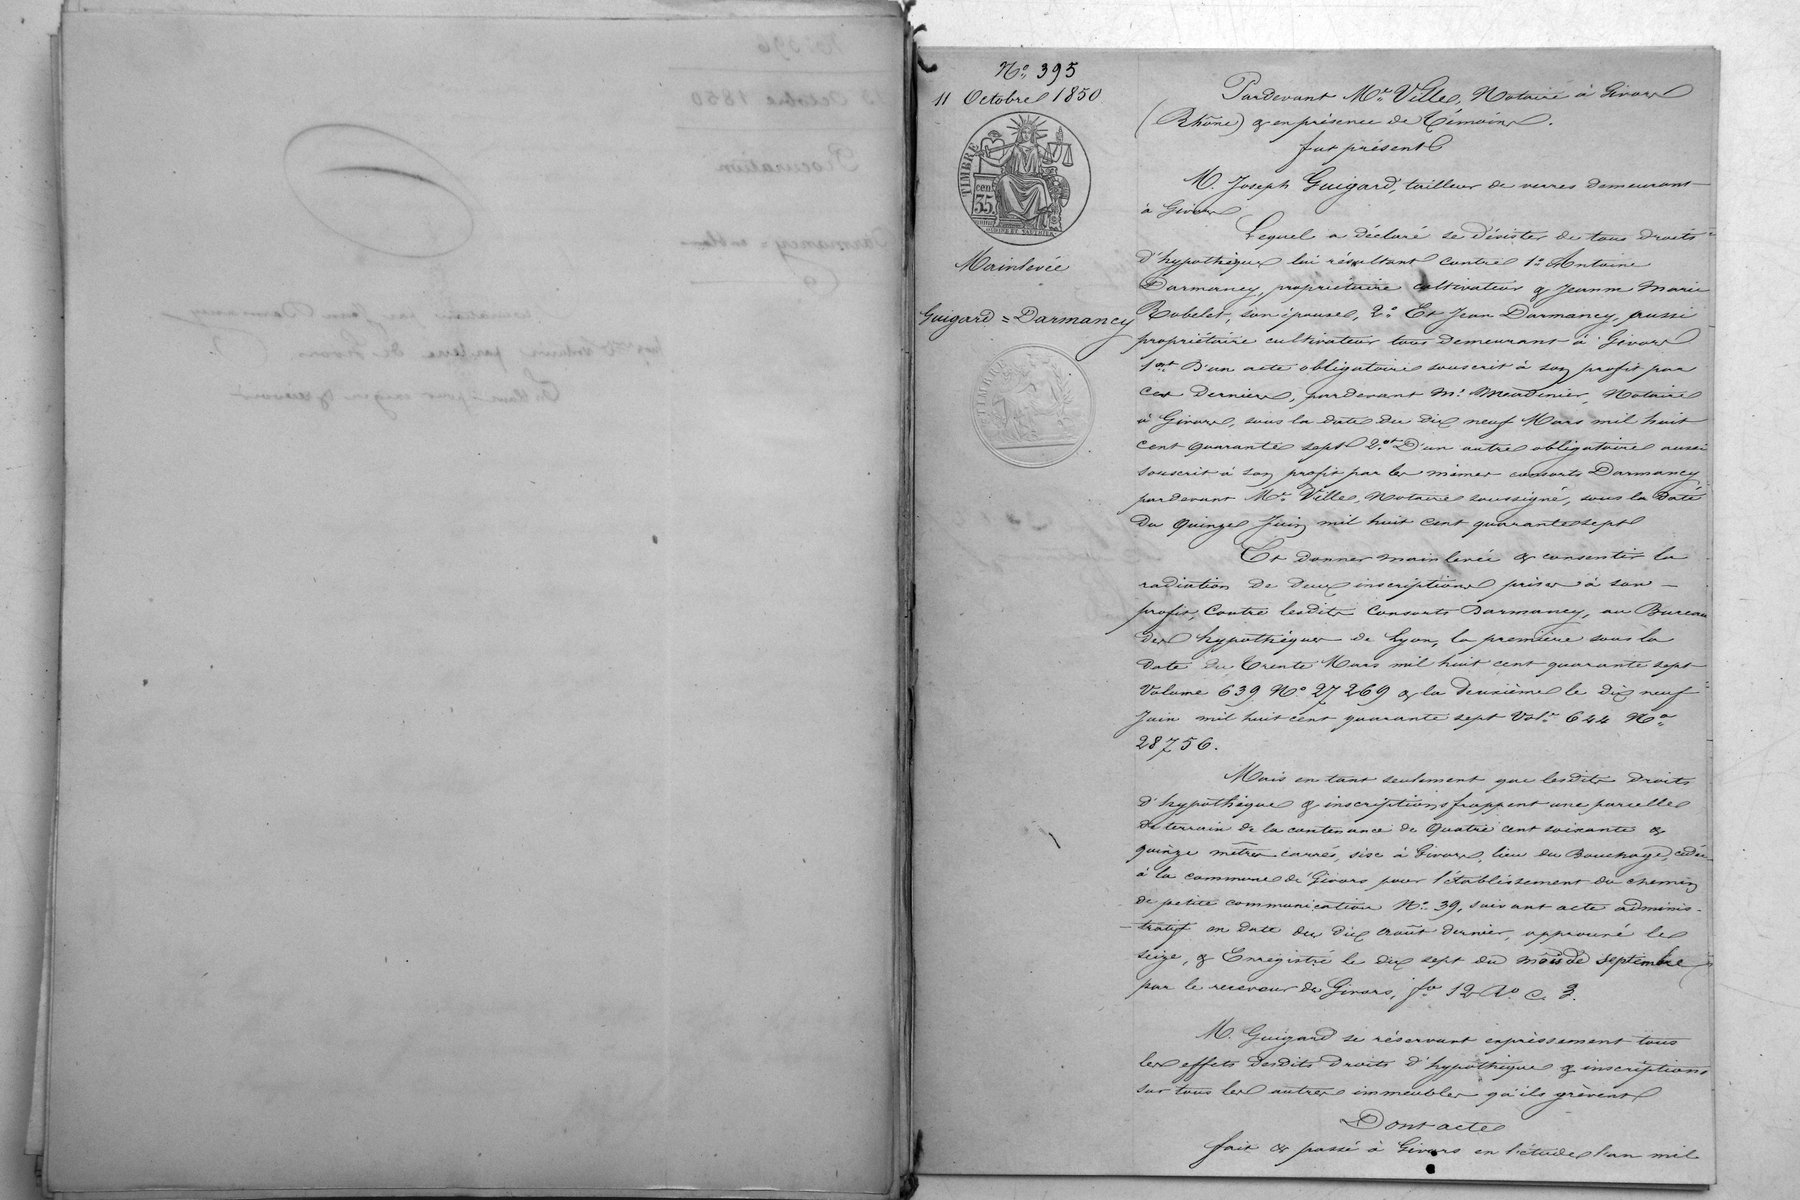 N° 395
11 Octobre 1850
TIMBRE
cent
35
Mainlevée
Guigard = Darmancy
TIMBRE
Pardevant Me Ville, Notaire à Givors
(Rhône) & en présence de Témoins.
fut présent
M. Joseph Guigard, tailleur de verres demeurant
à Givors
Lequel a déclaré se désister de tous droits
d'hypothèque lui résultant contre 1° Antoine
Darmancy, propriétaire cultivateur & Jeanne Marie
Robelet, son épouse, 2° Et Jean Darmancy, aussi
propriétaire cultivateur tous demeurant à Givors
1ent D'un acte obligatoire souscrit à son profit par
ces derniers, pardevant Me Meudinier, Notaire
à Givors, sous la date du dix neuf Mars mil huit
cent quarante sept 2ent D'un autre obligatoire aussi
souscrit à son profit par les mêmes consorts Darmancy
pardevant Me Ville, Notaire soussigné, sous la date
du quinze Juin mil huit cent quarante sept
Et donner mainlevée & consentir la
radiation de deux inscriptions prises à son
profit, contre lesdits consorts Darmancy, au Bureau
des hypothèques de Lyon, la première sous la
date du trente Mars mil huit cent quarante sept
Volume 639 N° 27269 & la deuxième le dix neuf
Juin mil huit cent quarante sept Vol. 644 N°
28756.
Mais en tant seulement que lesdits droits
d'hypothèque & inscriptions frappent une parcelle
de terrain de la contenance de quatre cent soixante &
quinze mètres carrés, sise à Givors, lieu du Bouchage, cédée
à la commune de Givors pour l'établissement du chemin
de petite communication N° 39, suivant acte adminis-
-tratif en date du dix août dernier, approuvé le
seize, & Enregistré le dix sept du mois de septembre
par le receveur de Givors, f° 12 V° C. 3.
M. Guigard se réservant expressément tous
les effets desdits droits d'hypothèque & inscriptions
sur tous les autres immeubles qu'ils grèvent
Dont acte
fait & passé à Givors en l'étude l'an mil